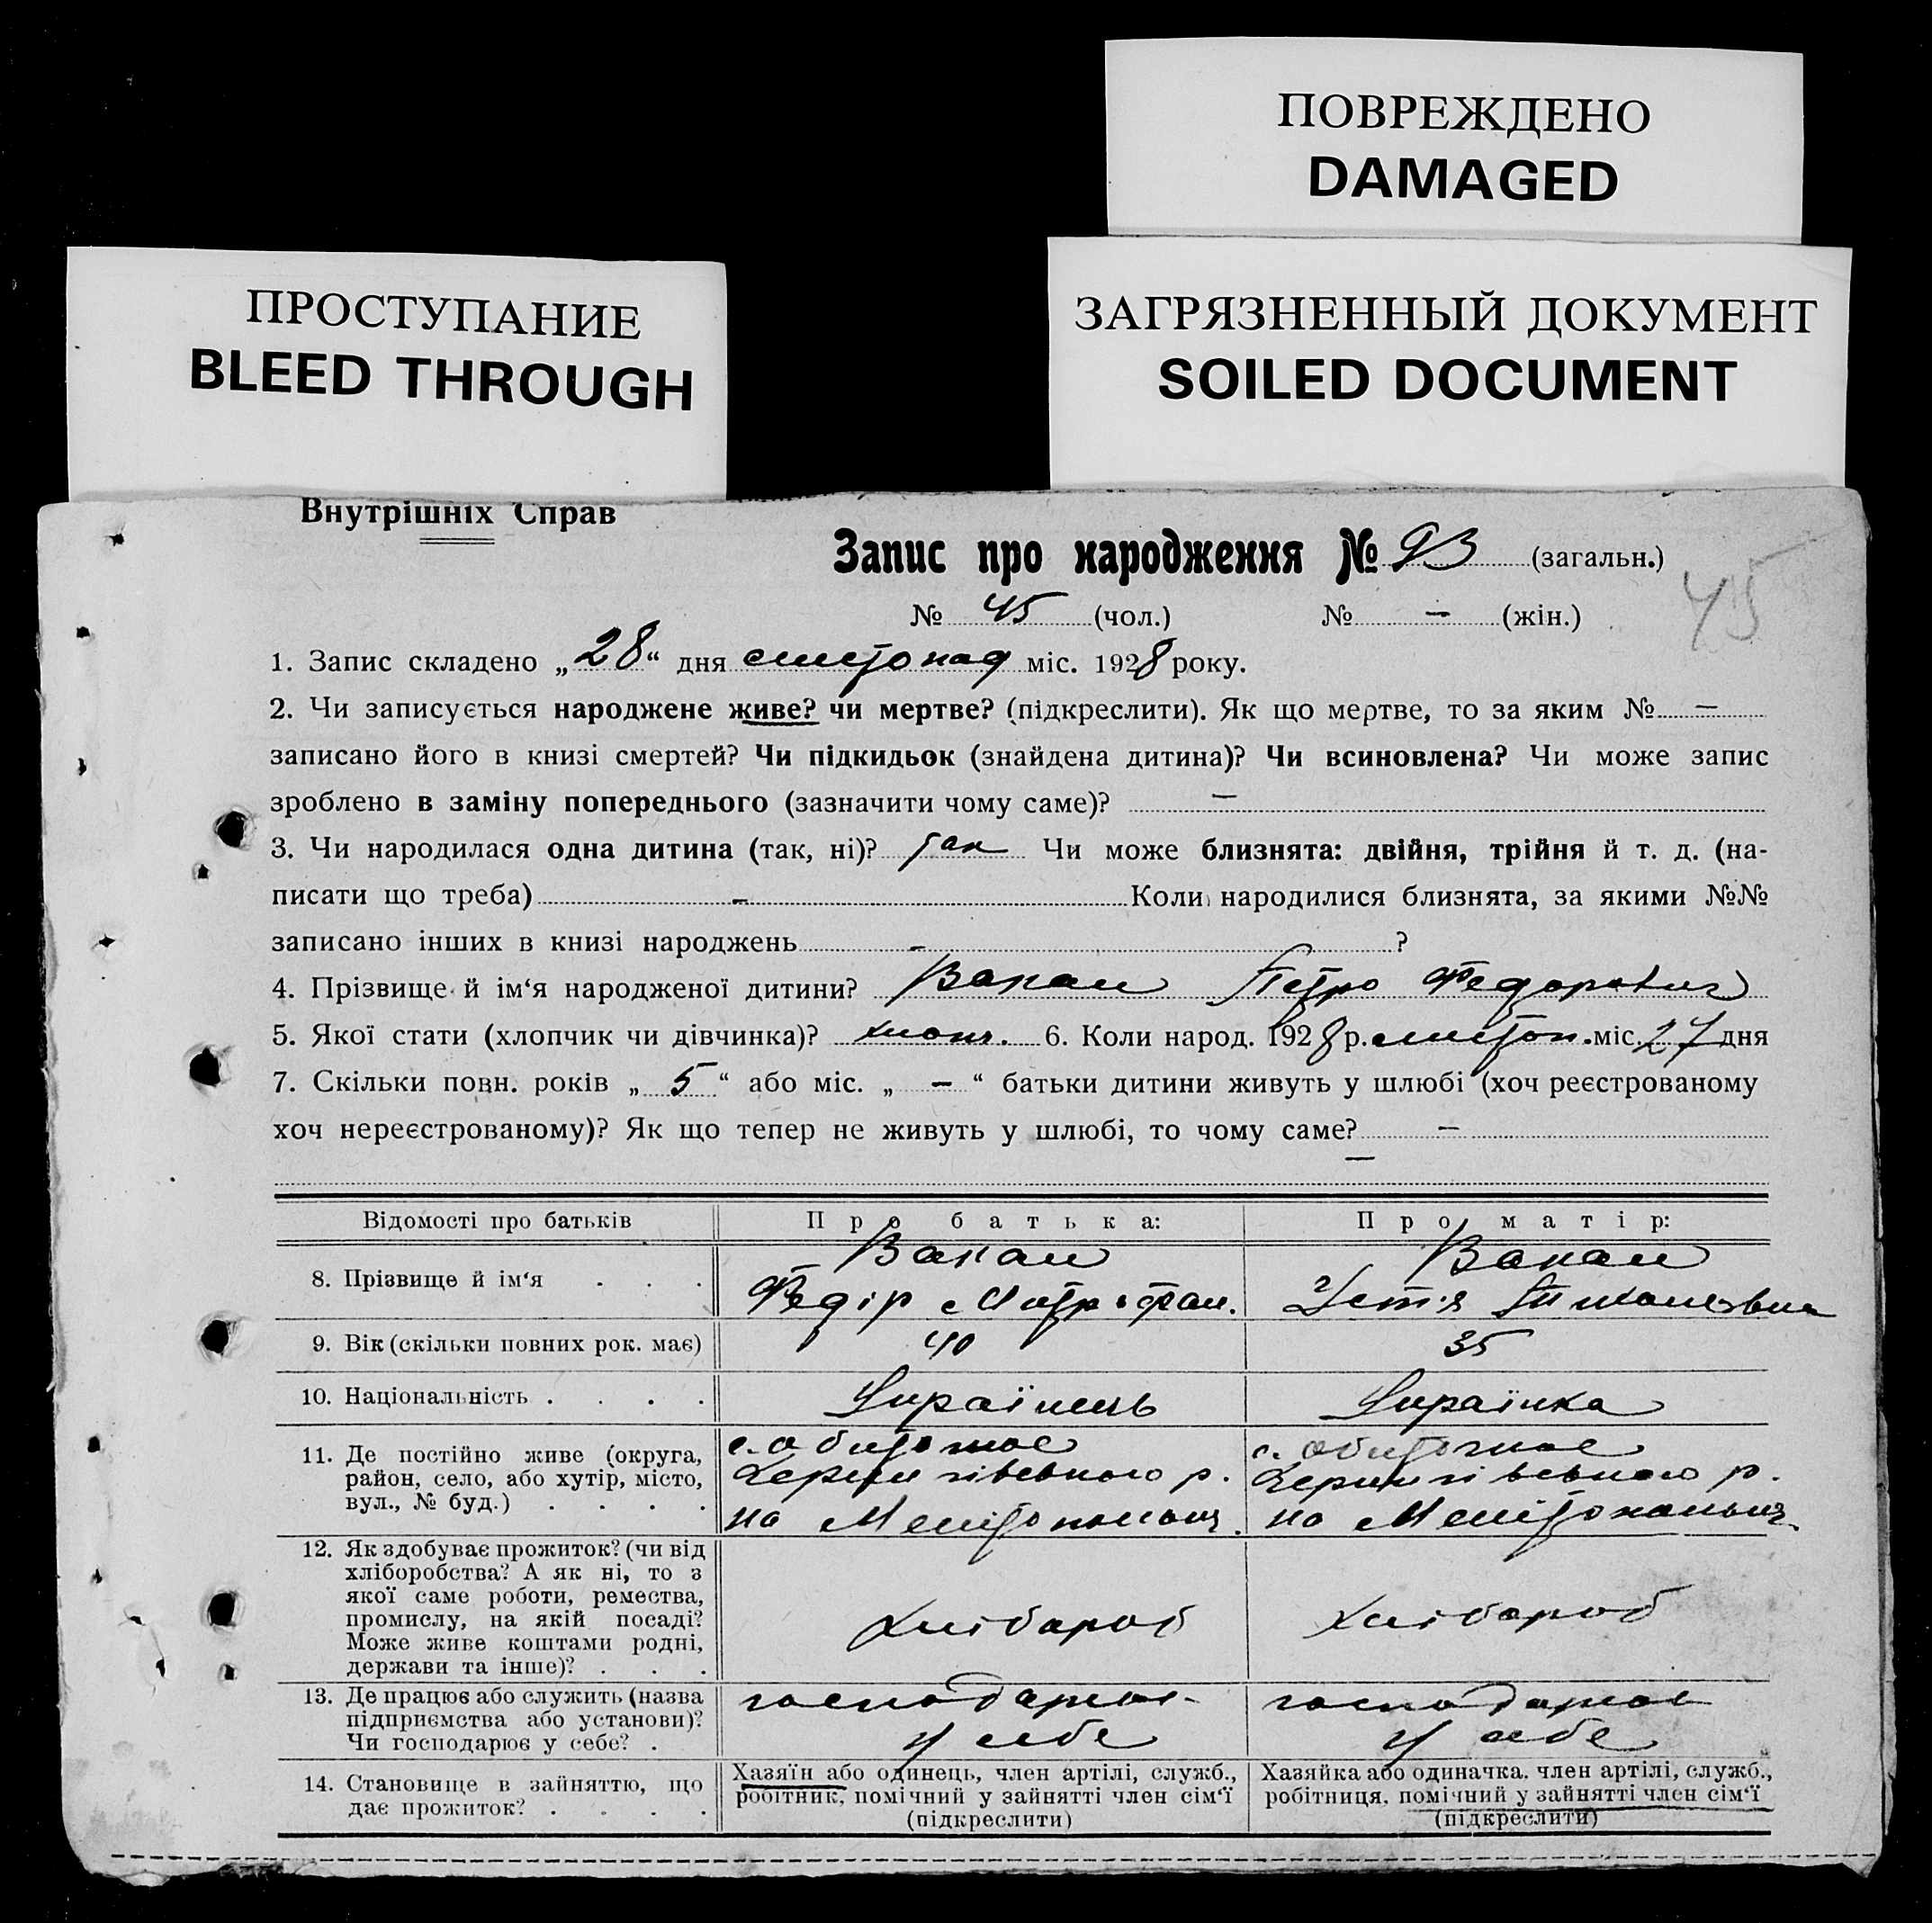 ПОВРЕЖДЕНО
DAMAGED
ПРОСТУПАНИЕ
BLEED THROUGH
ЗАГРЯЗНЕННЫЙ ДОКУМЕНТ
SOILED DOCUMENT
Внутрішніх Справ
Запис про народження № 93 (загальн.)
№ 45 (чол.) № — (жін.)
45
1. Запис складено „28“ дня листопад міс. 1928 року.
2. Чи записується народжене живе? чи мертве? (підкреслити). Як що мертве, то за яким № —
записано його в книзі смертей? Чи підкидьок (знайдена дитина)? Чи всиновлена? Чи може запис
зроблено в заміну попереднього (зазначити чому саме)? —
3. Чи народилася одна дитина (так, ні)? так Чи може близнята: двійня, трійня й т. д. (на-
писати що треба) - Коли народилися близнята, за якими №№
записано інших в книзі народжень - ?
4. Прізвище й ім‘я народженої дитини? Петро Федорович
5. Якої стати (хлопчик чи дівчинка)? хлопч. 6. Коли народ. 1928 р. листоп. міс. 27 дня
7. Скільки повн. років „ 5 “ або міс. „ — “ батьки дитини живуть у шлюбі (хоч реєстрованому
хоч нереєстрованому)? Як що тепер не живуть у шлюбі, то чому саме? —
—
Відомості про батьків Про батька: Про матір:
8. Прізвище й ім‘я
Федір Митрофан.
9. Вік (скільки повних рок. має) 40 35
10. Національність Українець Українка
11. Де постійно живе (округа,
район, село, або хутір, місто,
вул., № буд.)
с. Обиточне с. Обиточне
р. р.
на Мелітопольщ. на Мелітопольщ.
12. Як здобуває прожиток? (чи від
хліборобства? А як ні, то з
якої саме роботи, ремества,
промислу, на якій посаді?
Може живе коштами родні,
держави та інше)?
Хлібороб Хлібороб
13. Де працює або служить (назва
підприємства або установи)?
Чи господарює у себе?
господарює господарює
у себе у себе
14. Становище в зайняттю, що
дає прожиток?
Хазяїн або одинець, член артілі, служб.,
робітник, помічний у зайнятті член сім‘ї
(підкреслити)
Хазяйка або одиначка. член артілі, служб.,
робітниця, помічний у зайнятті член сім‘ї
(підкреслити)